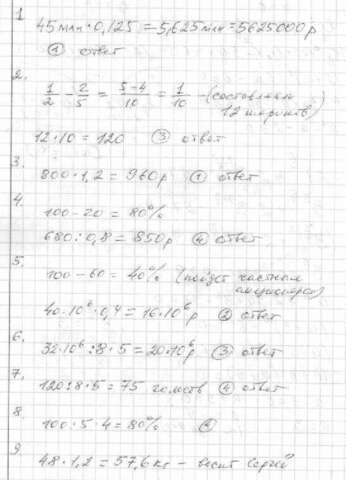 1
45 млн · 0,125 = 5,625 млн = 5625000 р
① ответ
2.
1/2 - 2/5 = (5-4)/10 = 1/10 - (составляют
12 шариков)
12 · 10 = 120 ③ ответ
3.
800 · 1,2 = 960 р ① ответ
4.
100 - 20 = 80%
680 : 0,8 = 850 р ④ ответ
5.
100 - 60 = 40% (пойдет частным
акционерам)
40·10⁶ · 0,4 = 16·10⁶ р ② ответ
6.
32·10⁶ : 8 · 5 = 20·10⁶ р ③ ответ
7.
120 : 8 · 5 = 75 голосов ④ ответ
8.
100 : 5 · 4 = 80%
9
48 · 1,2 = 57,6 кг - весит Сергей